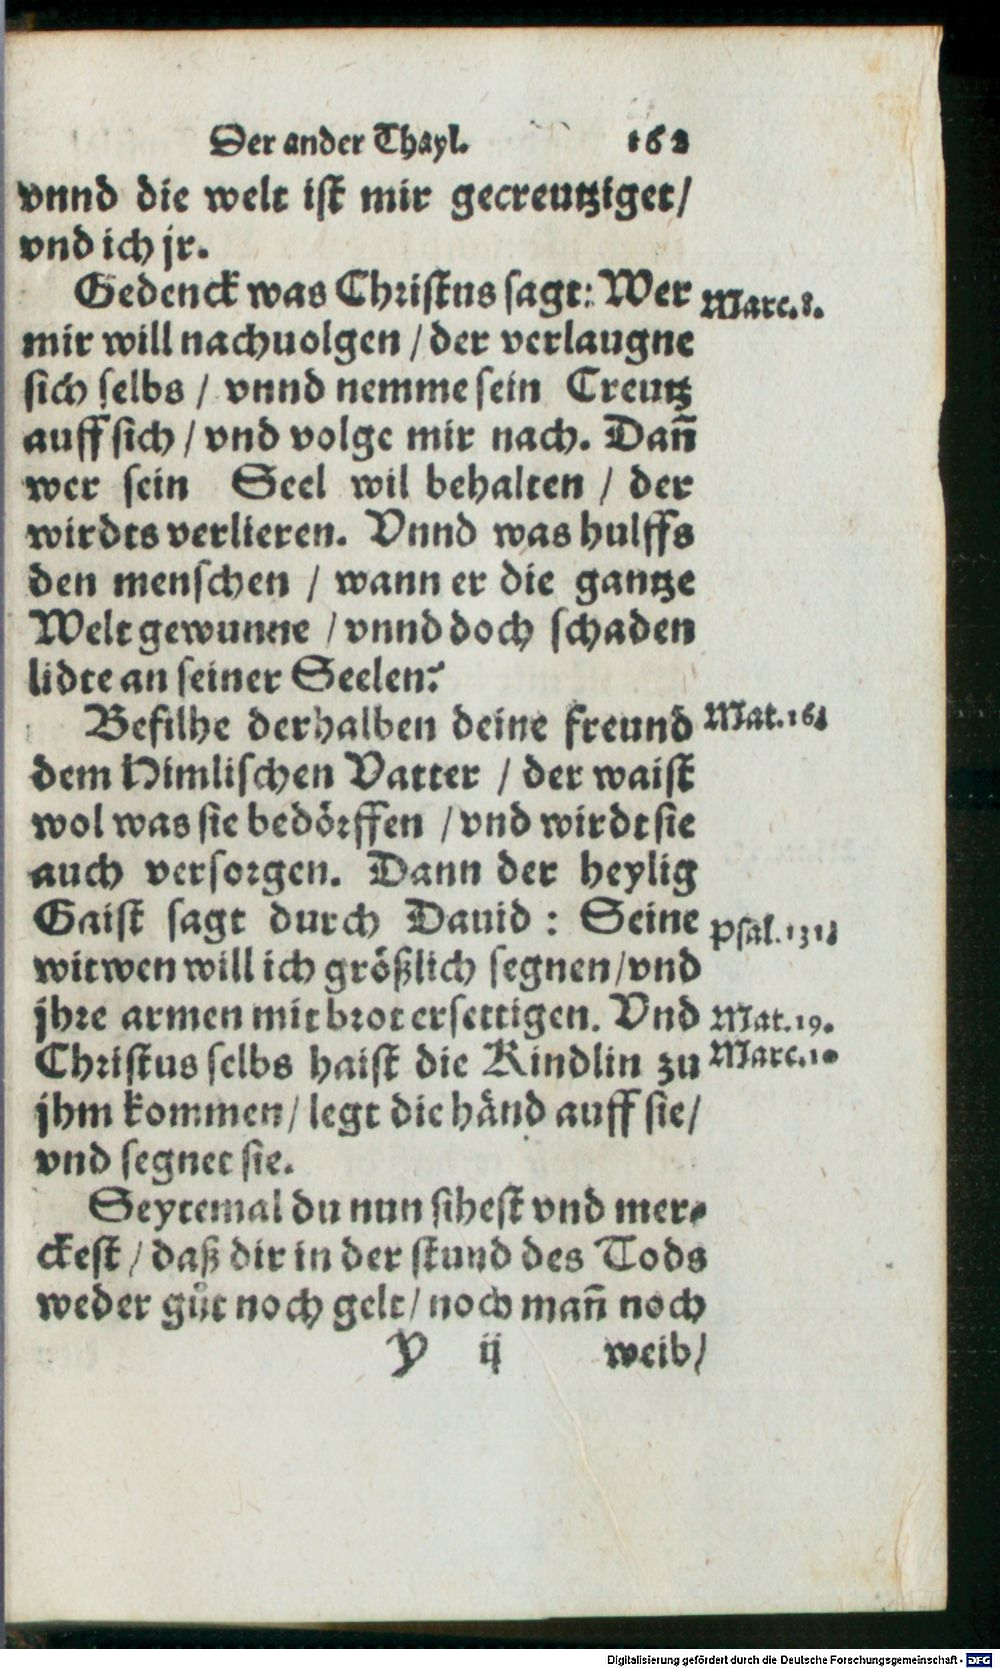 Der ander Thayl. 162
vnnd die welt ist mir gecreutziget/
vnd ich jr.
Gedenck was Christus sagt: Wer
Marc.8.
mir will nachuolgen / der verlaugne
sich selbs / vnnd nemme sein Creutz
auff sich / vnd volge mir nach. Dañ
wer sein Seel wil behalten / der
wirdts verlieren. Vnnd was hulffs
den menschen / wann er die gantze
Welt gewunne / vnnd doch schaden
lidte an seiner Seelen?
Befilhe derhalben deine freund
Mat.16.
dem Himlischen Vatter / der waist
wol was sie bedörffen / vnd wirdt sie
auch versorgen. Dann der heylig
Gaist sagt durch Dauid : Seine
Psal.131.
witwen will ich größlich segnen/vnd
jhre armen mit brot ersettigen. Vnd
Mat.19.
Christus selbs haist die Kindlin zu
Marc.10
jhm kommen/ legt die händ auff sie/
vnd segnet sie.
Seytemal du nun sihest vnd mer-
ckest / daß dir in der stund des Tods
weder gůt noch gelt/ noch mañ noch
Y ij weib/
Digitalisierung gefördert durch die Deutsche Forschungsgemeinschaft - DFG